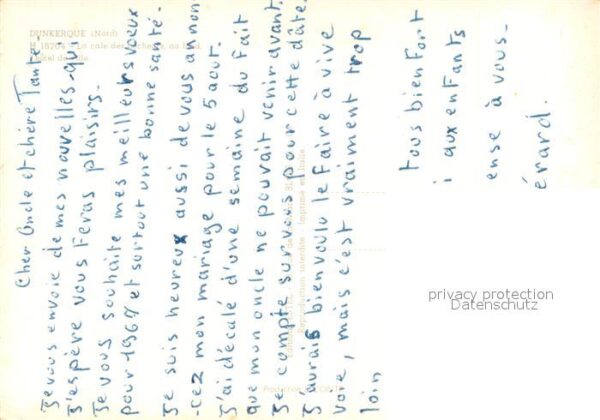 DUNKERQUE (Nord)
H. 18704 - La cale des
Cher Oncle et chère Tante.
Je vous envoie de mes nouvelles - qui
J'espère vous Feras plaisirs.
Je vous souhaite mes meilleurs voeux
pour 1967 et surtout une bonne santé.
Je suis heureux aussi de vous annon
-cez mon mariage pour le 5 août.
J'ai décalé d'une semaine du fait
que mon oncle ne pouvait venir avant.
Je compte sur vous pour cette date.
J'aurais bien voulu le Faire à vive
voie, mais c'est vraiment trop
loin
tous bien Fort
i aux enfants
ense à vous -
érard.
Reproduction interdite Imprimé en Italie
privacy protection
Datenschutz